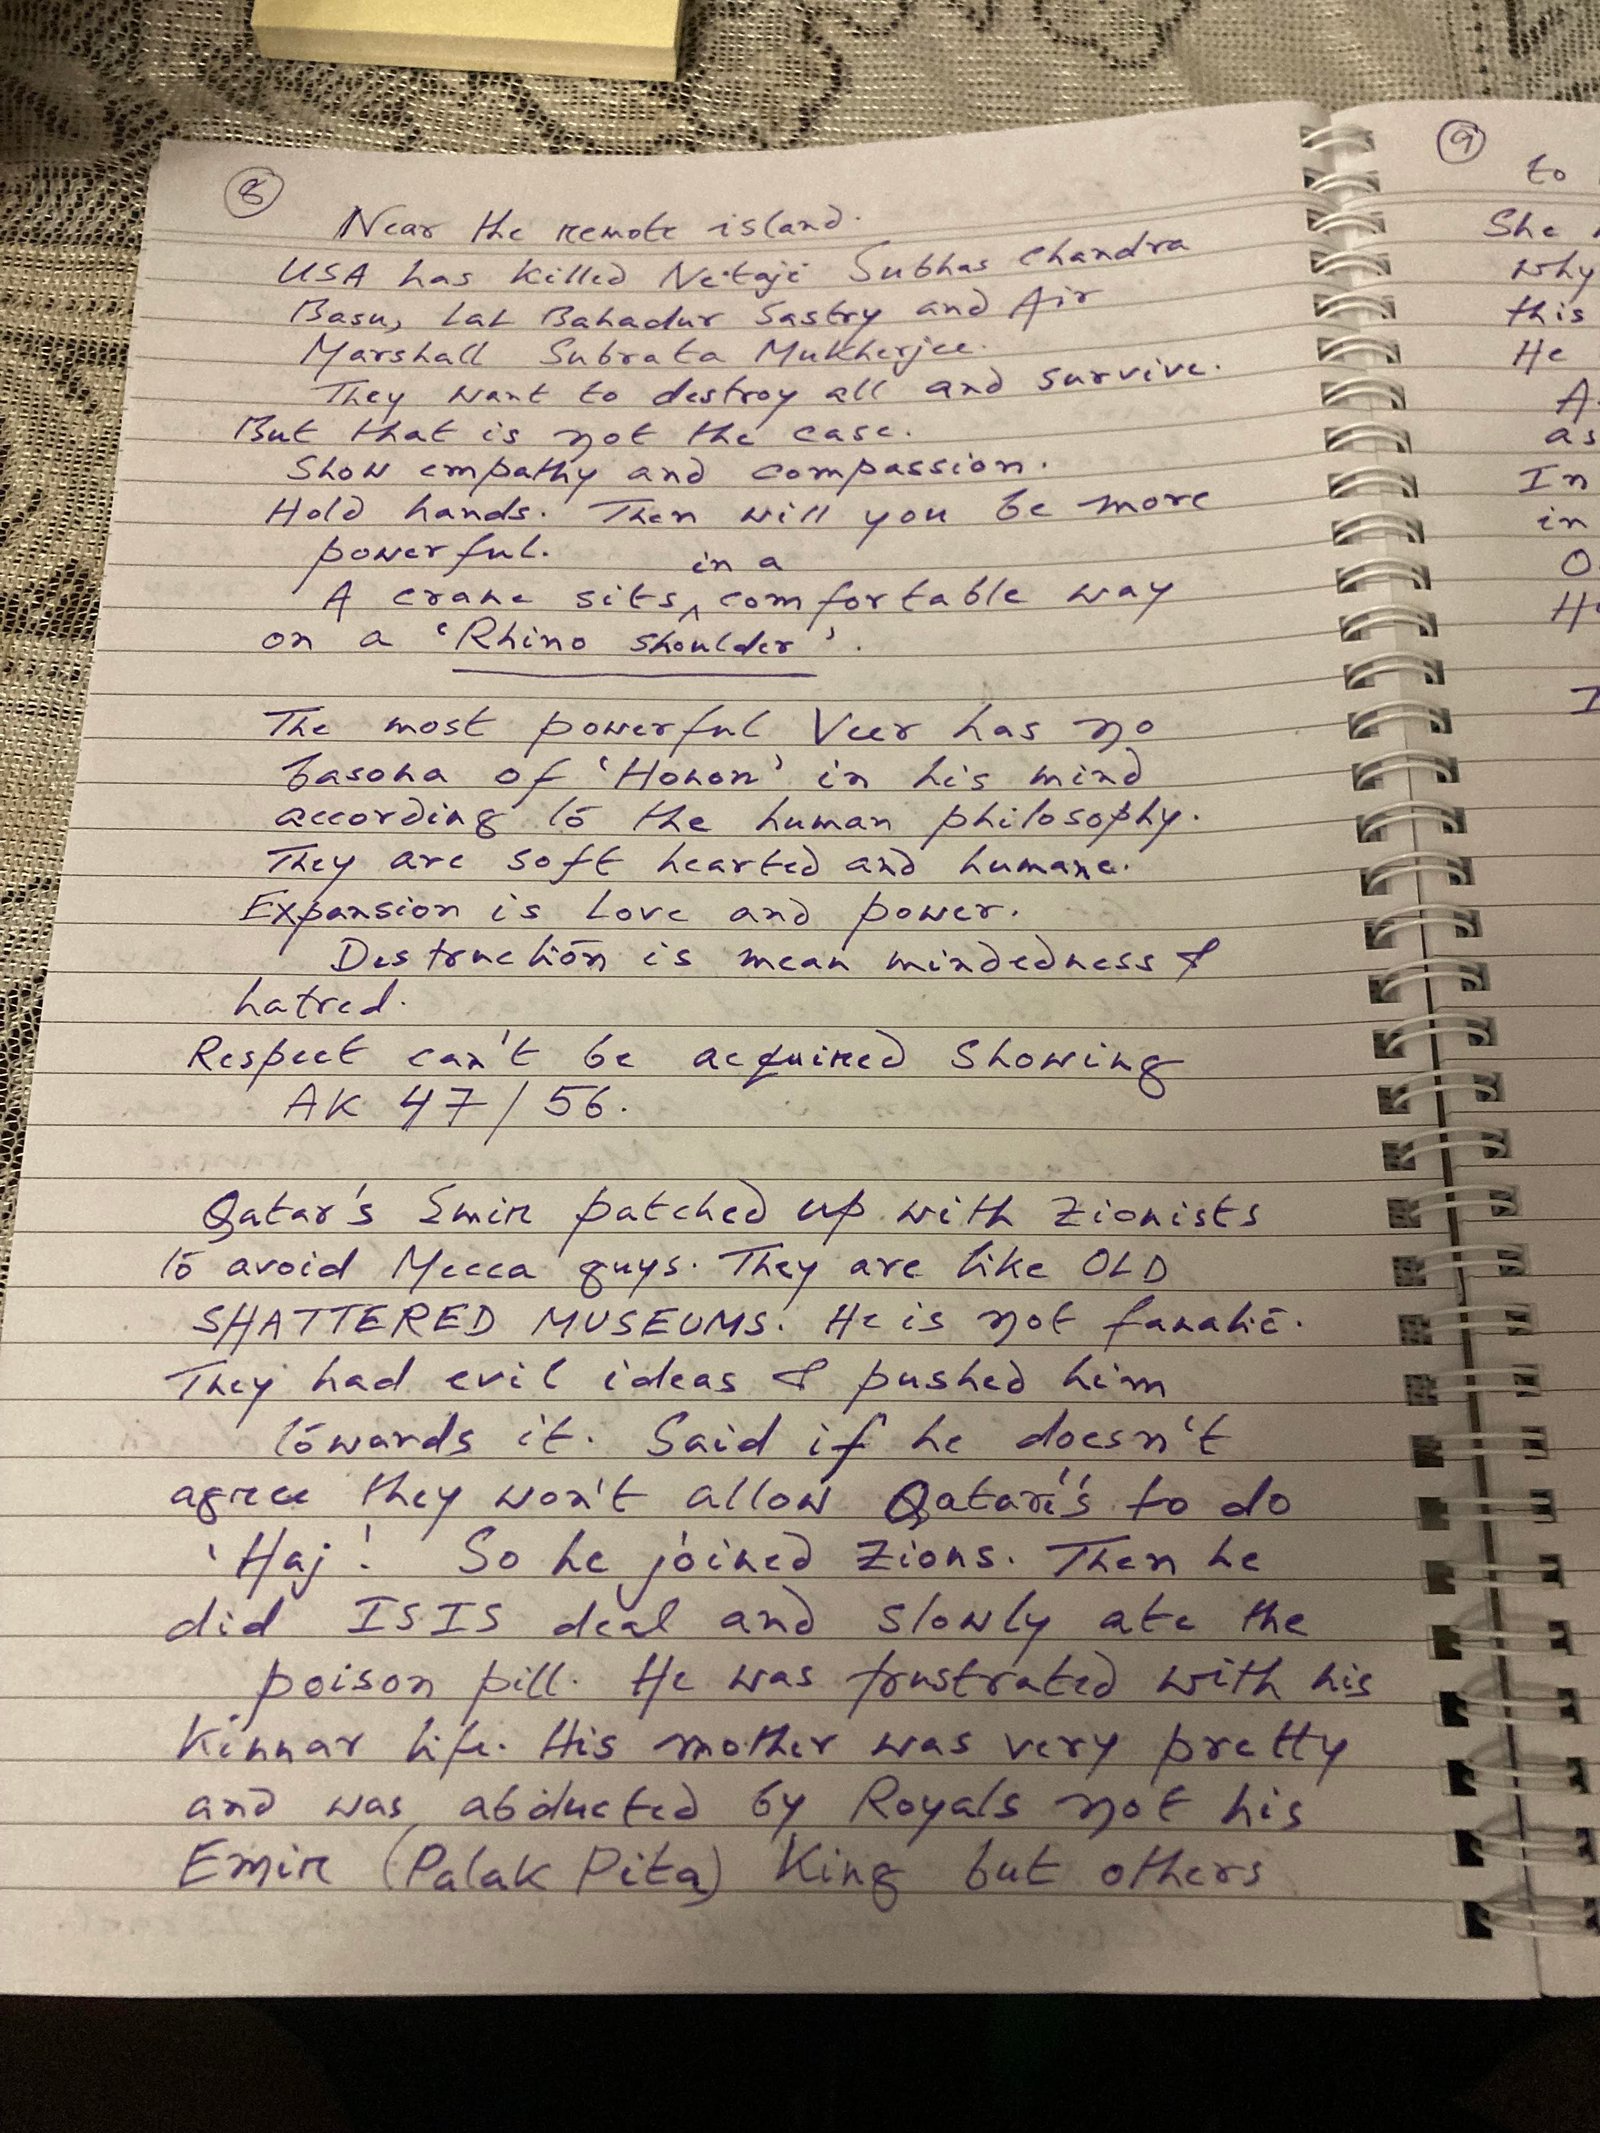 8
Near the remote island.
USA has killed Netaji Subhas Chandra
Basu, Lal Bahadur Sastry and Air
Marshall Subrata Mukherjee.
They want to destroy all and survive.
But that is not the case.
Show empathy and compassion.
Hold hands. Then will you be more
powerful.
A crane sits in a comfortable way
on a 'Rhino shoulder'.
The most powerful Veer has no
basona of 'Honon' in his mind
according to the human philosophy.
They are soft hearted and humane.
Expansion is Love and power.
Destruction is mean mindedness &
hatred.
Respect can't be acquired showing
AK 47/56.
Qatar's Emir patched up with Zionists
to avoid Mecca guys. They are like OLD
SHATTERED MUSEUMS. He is not fanatic.
They had evil ideas & pushed him
towards it. Said if he doesn't
agree they won't allow Qatari's to do
'Haj'. So he joined Zions. Then he
did ISIS deal and slowly ate the
poison pill. He was frustrated with his
Kinnar life. His mother was very pretty
and was abducted by Royals not his
Emir (Palak Pita) King but others
9
to
She
why
this
He
as
In
in